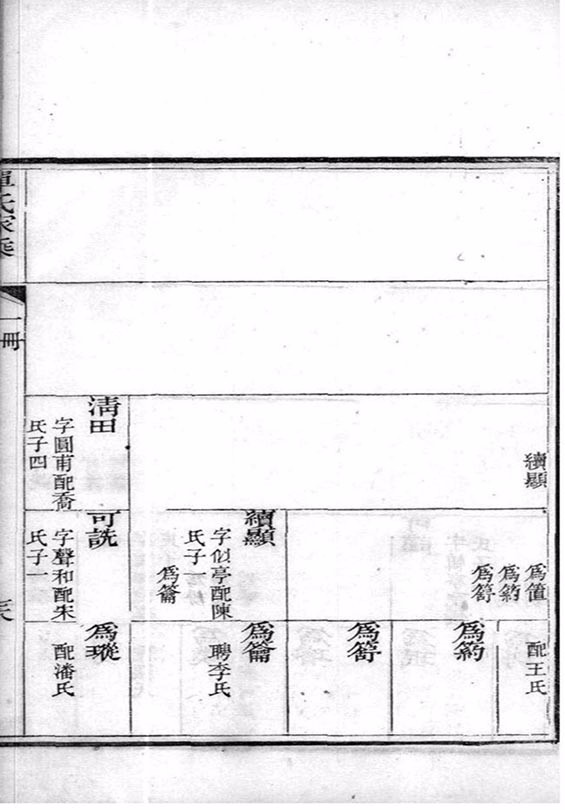 續顯
爲箹
爲笴
配王氏
爲箹
爲笴
續顯
字似亭配陳
氏子
爲籥
爲籥
聘李氏
清田
字圓甫配喬
氏子四
可詵
字聲和配朱
氏子一
爲瑽
配潘氏
單氏家乘
一冊